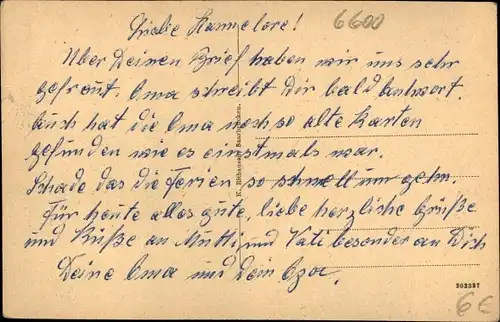 Liebe Hannelore!
6600
Über Deinen Brief haben wir uns sehr
gefreut. Oma schreibt Dir bald Antwort.
Auch hat die Oma noch so alte Karten
gefunden wie es einstmals war.
Schade das die Ferien so schnell um gehn.
Für heute alles gute, liebe herzliche Grüße
und Küße an Mutti, und Vati besonder an Dich
Deine Oma und Dein Opa.
Saarbrücken.
303587
6€